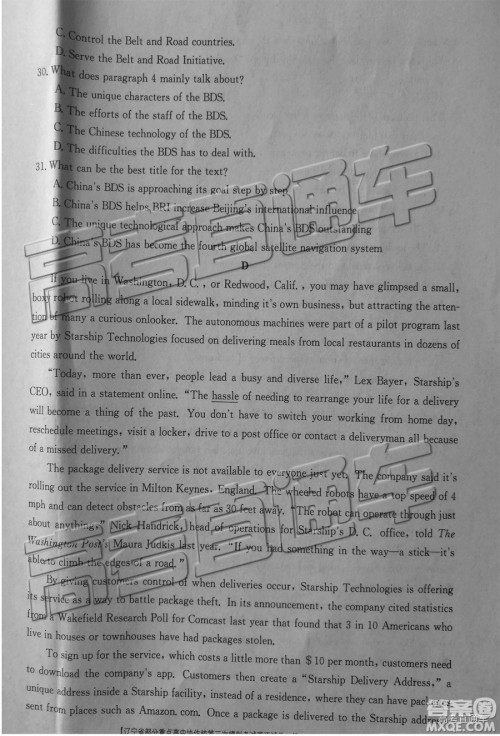 C. Control the Belt and Road countries.
D. Serve the Belt and Road Initiative.
30. What does paragraph 4 mainly talk about?
A. The unique characters of the BDS.
B. The efforts of the staff of the BDS.
C. The Chinese technology of the BDS.
D. The difficulties the BDS has to deal with.
31. What can be the best title for the text?
A. China's BDS is approaching its goal step by step
B. China's BDS helps BRI increase Beijing's international influence
C. The unique technological approach makes China's BDS outstanding
D. China's BDS has become the fourth global satellite navigation system
D
If you live in Washington, D. C. , or Redwood, Calif. , you may have glimpsed a small,
boxy robot rolling along a local sidewalk, minding it's own business, but attracting the atten-
tion of many a curious onlooker. The autonomous machines were part of a pilot program last
year by Starship Technologies focused on delivering meals from local restaurants in dozens of
cities around the world.
"Today, more than ever, people lead a busy and diverse life," Lex Bayer, Starship's
CEO, said in a statement online. "The hassle of needing to rearrange your life for a delivery
will become a thing of the past. You don't have to switch your working from home day,
reschedule meetings, visit a locker, drive to a post office or contact a deliveryman all because
of a missed delivery. "
The package delivery service is not available to everyone just yet. The company said it's
rolling out the service in Milton Keynes, England. The wheeled robots have a top speed of 4
mph and can detect obstacles from as far as 30 feet away. "The robot can operate through just
about anything," Nick Handrick, head of operations for Starship's D. C. office, told The
Washington Post's Maura Judkis last year. "If you had something in the way—a stick—it's
able to climb the edges of a road."
By giving customers control of when deliveries occur, Starship Technologies is offering
its service as a way to battle package theft. In its announcement, the company cited statistics
from a Wakefield Research Poll for Comcast last year that found that 3 in 10 Americans who
live in houses or townhouses have had packages stolen.
To sign up for the service, which costs a little more than $ 10 per month, customers need
to download the company's app. Customers then create a "Starship Delivery Address," a
unique address inside a Starship facility, instead of a residence, where they can have packages
sent from places such as Amazon. com. Once a package is delivered to the Starship address,
高考直通车
高考直通车
高考直通车
答案圈
MXQE.COM